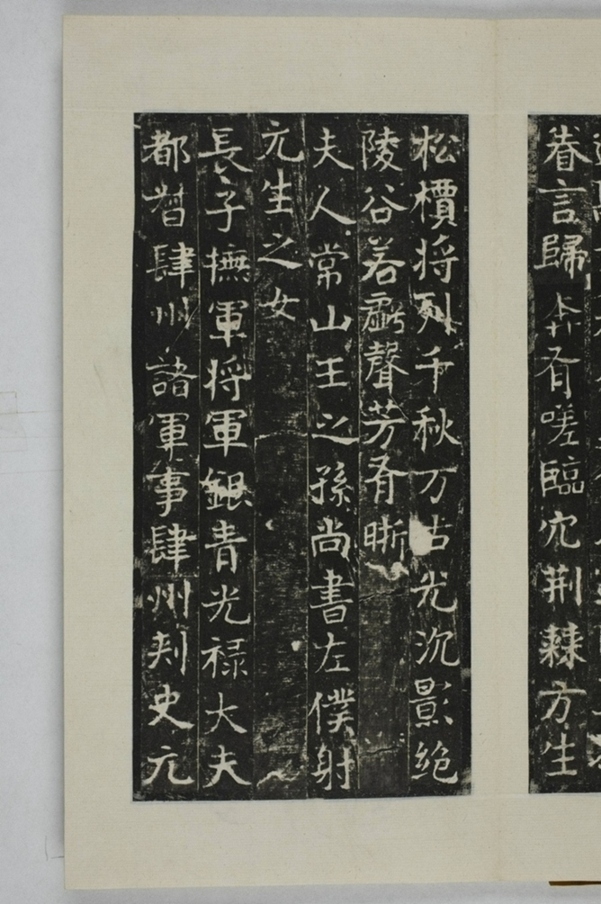 眷言歸𡴘有嗟臨穴荆蕀方生
松檟将列千秋万古光沉影絶
陵谷若虧聲芳有晰
夫人常山王之孫尚書左僕射
元生之女
長子撫軍将軍銀青光禄大夫
都督肆州諸軍事肆州刾史元